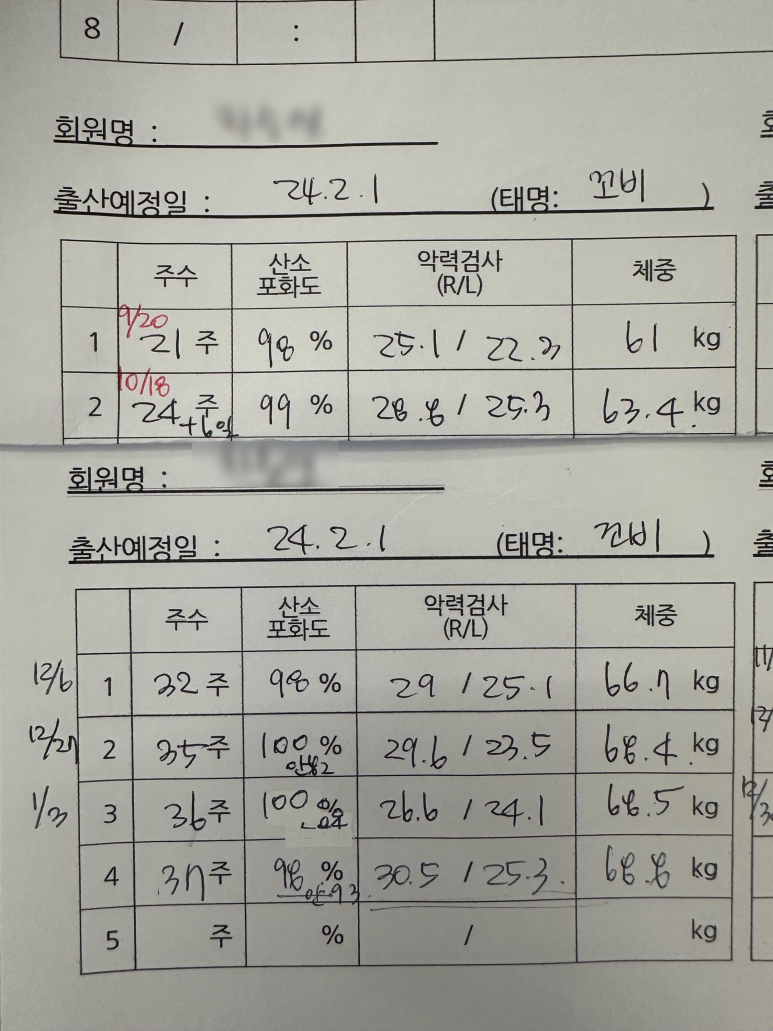 8 / :
회원명 :
출산예정일 : 24.2.1 (태명: 꼬비 )
주수 산소포화도 악력검사 (R/L) 체중
9/20
1 21 주 98 % 25.1 / 22.3 61 kg
10/18
2 24 주 +6일 99 % 28.8 / 25.3 63.4 kg
회원명 :
출산예정일 : 24.2.1 (태명: 꼬비 )
주수 산소포화도 악력검사 (R/L) 체중
12/6 1 32 주 98 % 29 / 25.1 66.7 kg
12/27 2 35 주 100 % 29.6 / 23.5 68.4 kg
1/3 3 36 주 100 % 26.6 / 24.1 68.5 kg
4 37 주 98 % 30.5 / 25.3 68.8 kg
5 주 % / kg